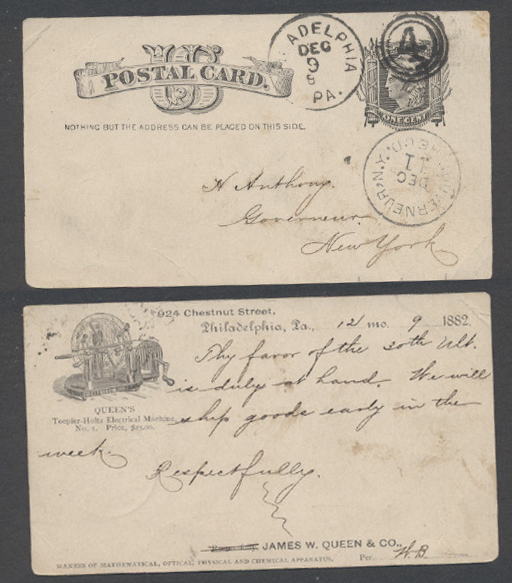 U S
POSTAL CARD.
NOTHING BUT THE ADDRESS CAN BE PLACED ON THIS SIDE.
ADELPHIA
DEC
9
PA.
4
ONE CENT
VERNEUR, N.Y.
DEC
11
H Anthony.
Governeur.
New York
924 Chestnut Street,
Philadelphia, Pa., 12 mo. 9 1882.
Thy favor of the 30th Ult.
is duly at hand. We will
ship goods early in the
week.
Respectfully.
QUEEN'S
Toepler-Holtz Electrical Machine,
No. 1. Price, $25.00.
JAMES W. QUEEN & CO.,
MAKERS OF MATHEMATICAL, OPTICAL, PHYSICAL AND CHEMICAL APPARATUS. Per W.B.